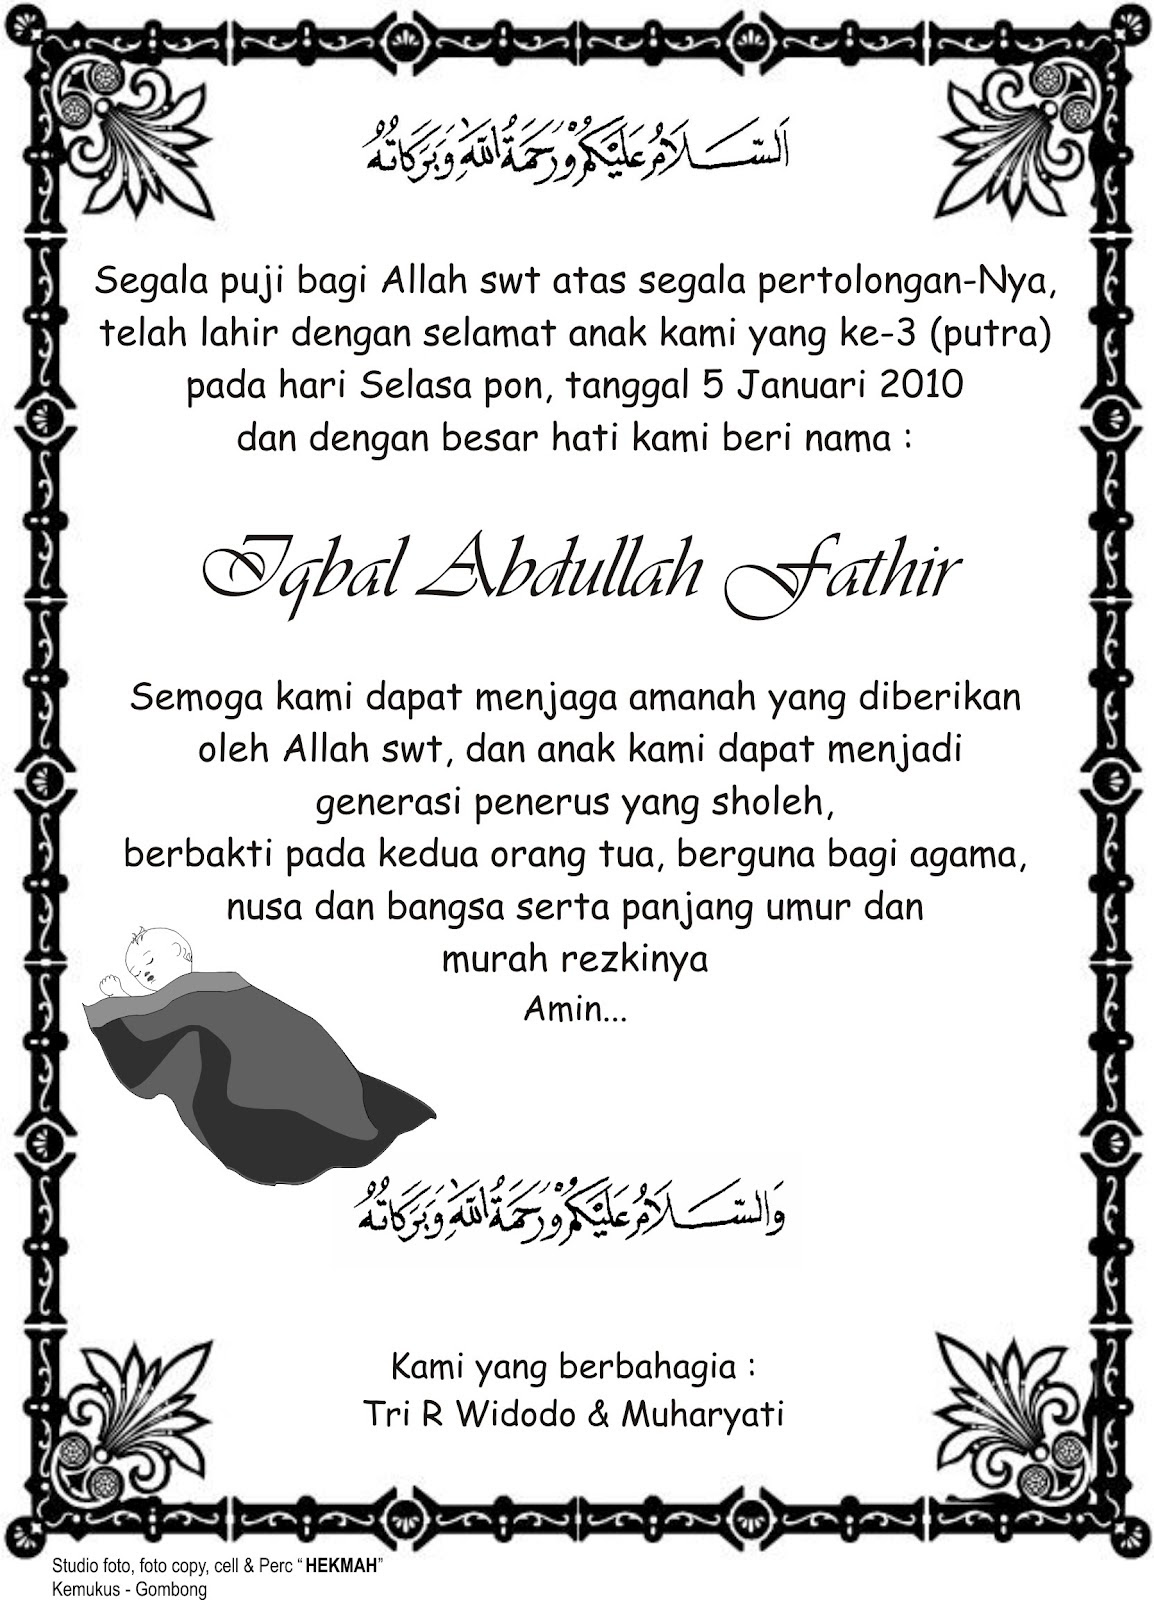 اَلسَّلَامُ عَلَيْكُمْ وَرَحْمَةُ اللهِ وَبَرَكَاتُهُ
Segala puji bagi Allah swt atas segala pertolongan-Nya,
telah lahir dengan selamat anak kami yang ke-3 (putra)
pada hari Selasa pon, tanggal 5 Januari 2010
dan dengan besar hati kami beri nama :
Iqbal Abdullah Fathir
Semoga kami dapat menjaga amanah yang diberikan
oleh Allah swt, dan anak kami dapat menjadi
generasi penerus yang sholeh,
berbakti pada kedua orang tua, berguna bagi agama,
nusa dan bangsa serta panjang umur dan
murah rezkinya
Amin...
وَالسَّلَامُ عَلَيْكُمْ وَرَحْمَةُ اللهِ وَبَرَكَاتُهُ
Kami yang berbahagia :
Tri R Widodo & Muharyati
Studio foto, foto copy, cell & Perc “ HEKMAH”
Kemukus - Gombong